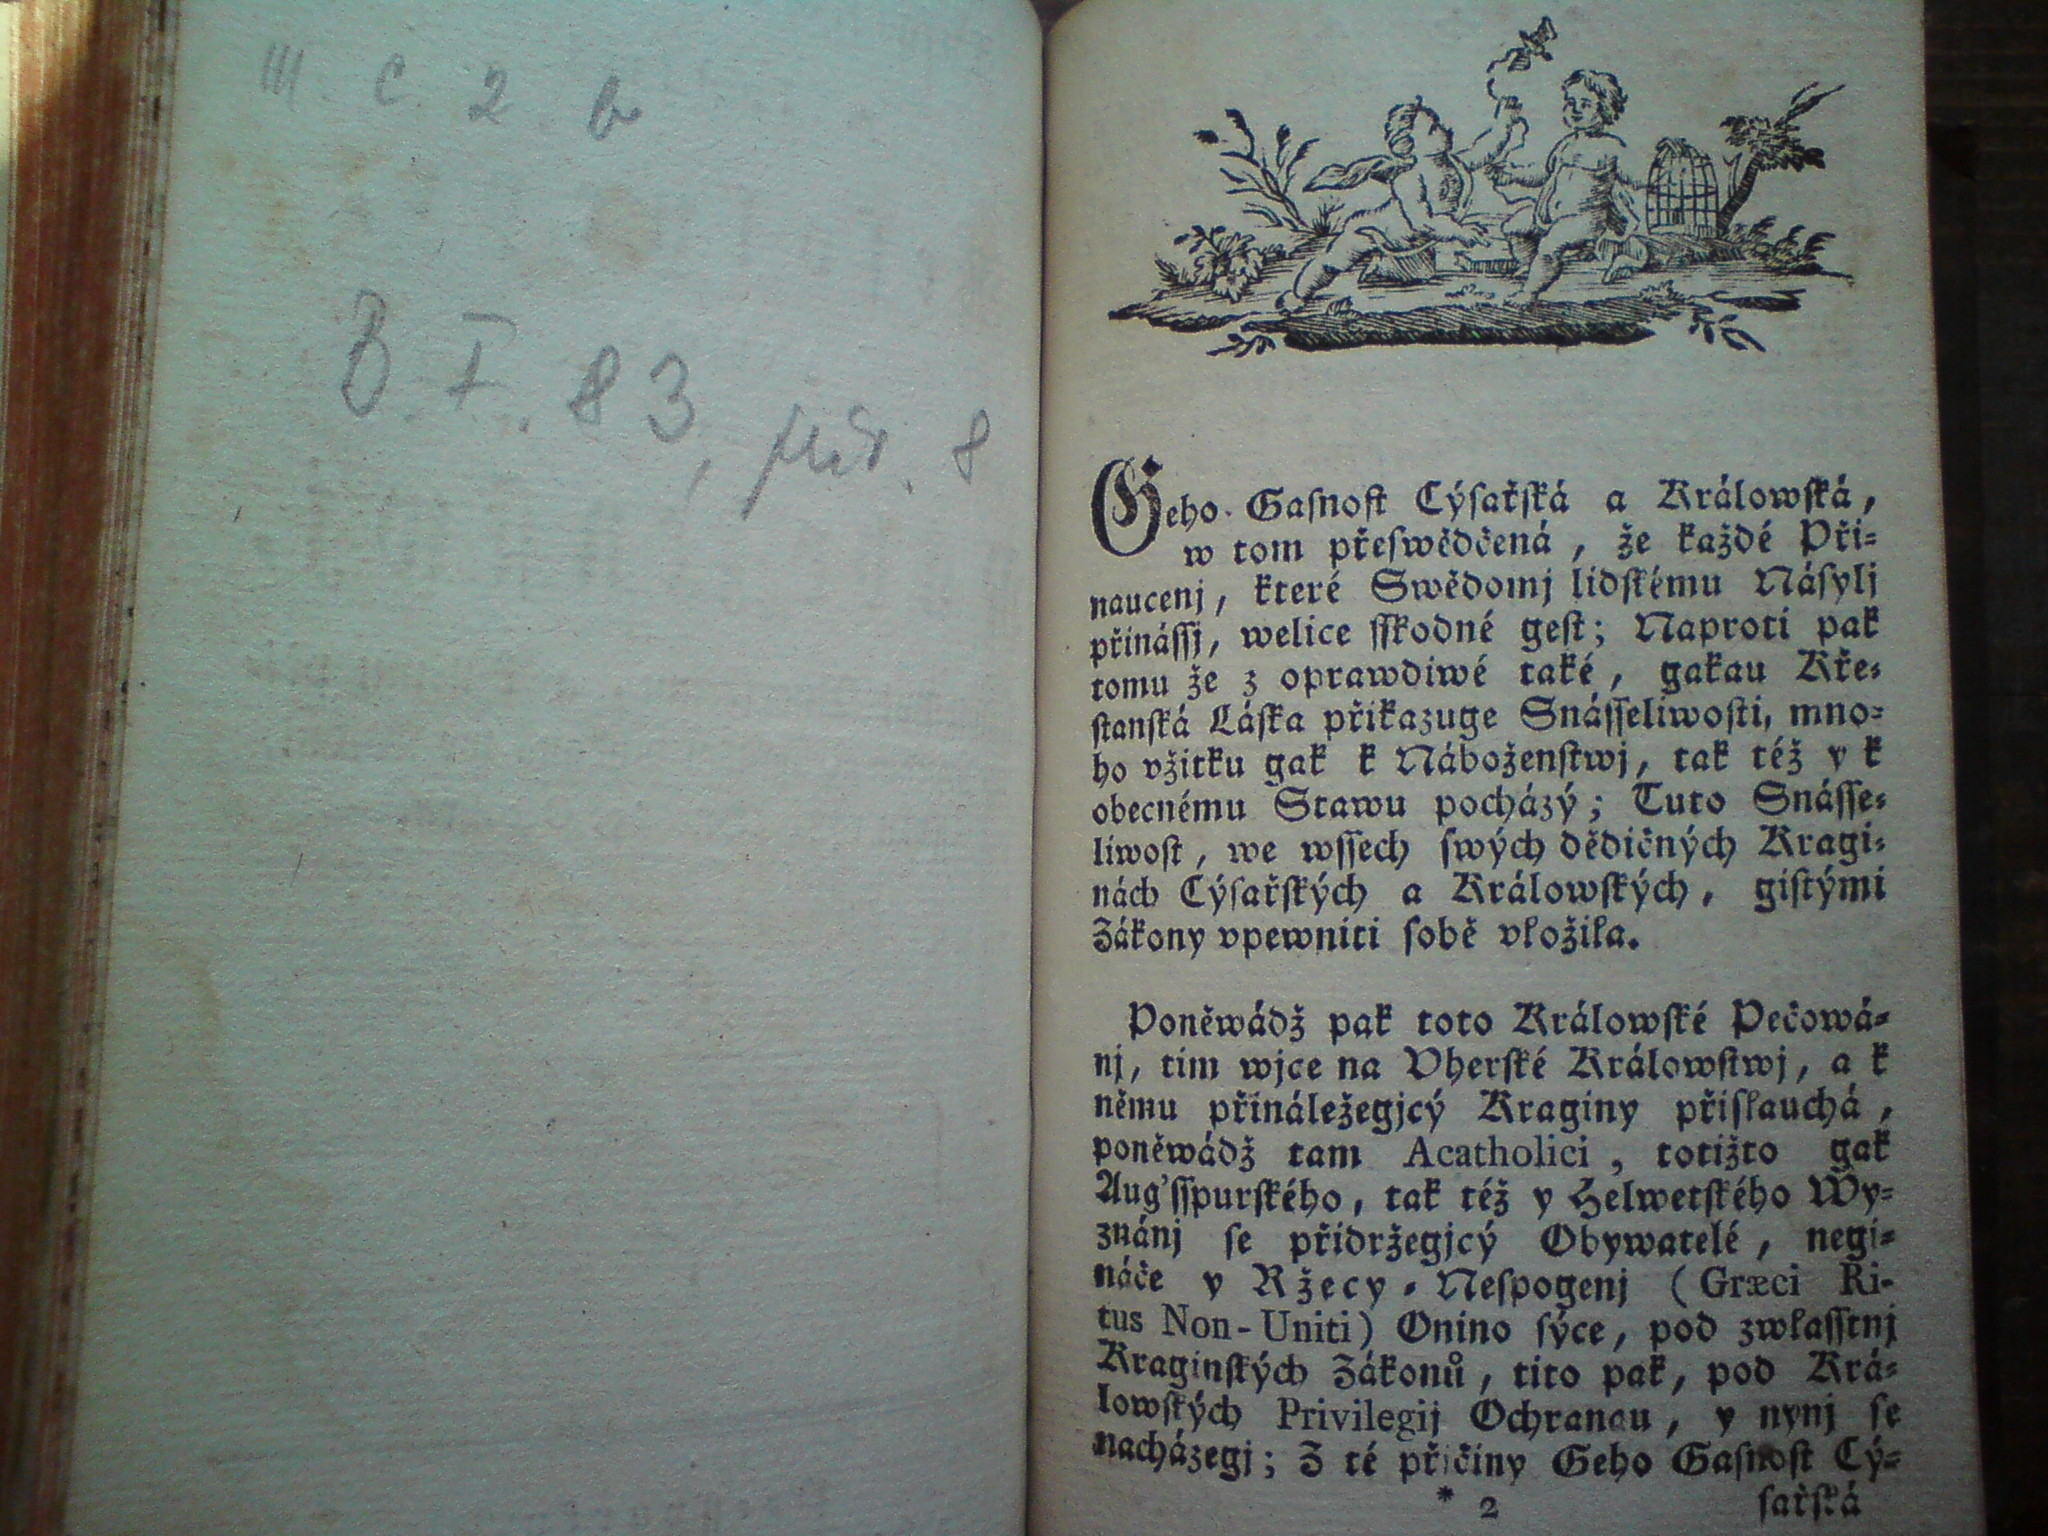 III. C. 2. b
B. I. 83, přív. 8
Geho Gaſnoſt Cýſařſká a Králowſká,
w tom přeſwědčená, že každé Při-
naucenj, které Swědomj lidſkému Náſylj
přináſſj, welice ſſkodné geſt; Naproti pak
tomu že z oprawdiwé také, gakau Kře-
ſtanſká Láſka přikazuge Snáſſeliwoſti, mno-
ho vžitku gak k Náboženſtwj, tak též y k
obecnému Stawu pocházý; Tuto Snáſſe-
liwoſt, we wſſech ſwých dědičných Kragi-
nách Cýſařſkých a Králowſkých, giſtými
Zákony vpewniti ſobě vložila.
Poněwádž pak toto Králowſké Pečowá-
nj, tim wjce na Vherſké Králowſtwj, a k
němu přináležegjcý Kraginy přiſlauchá,
poněwádž tam Acatholici, totižto gak
Aug'ſſpurſkého, tak též y Helwetſkého Wy-
znánj ſe přidržegjcý Obywatelé, negi-
náče y Ržecy-Neſpogenj (Græci Ri-
tus Non-Uniti) Onino ſýce, pod zwlaſſtnj
Kraginſkých Zákonů, tito pak, pod Krá-
lowſkých Privilegij Ochranau, y nynj ſe
nacházegj; Z té přičiny Geho Gaſnoſt Cý-
* 2 ſařſká